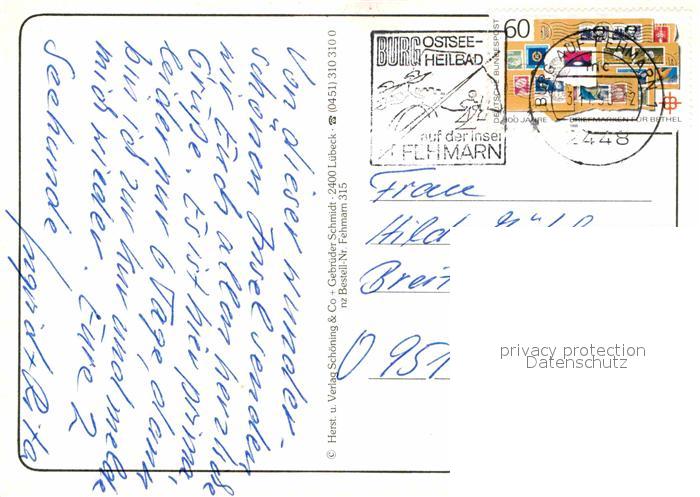 Von dieser wunder-
schönen Insel senden
wir Euch allen herzliche
Grüße. Es ist hier prima,
leider nur 6 Tage, dann
bin ich zur Kur und melde
mich wieder. Eure 2
Seehunde
Ingrid + Rita
© Herst. u. Verlag Schöning & Co + Gebrüder Schmidt · 2400 Lübeck · ☎ (0451) 310 310 0
nz Bestell-Nr. Fehmarn 315
BURG OSTSEE-
HEILBAD
auf der Insel
FEHMARN
60
DEUTSCHE BUNDESPOST
100 JAHRE BRIEFMARKEN FÜR BETHEL
BURG AUF FEHMARN 1
mc
2448
Frau
Hild
Brei
O 951
privacy protection
Datenschutz